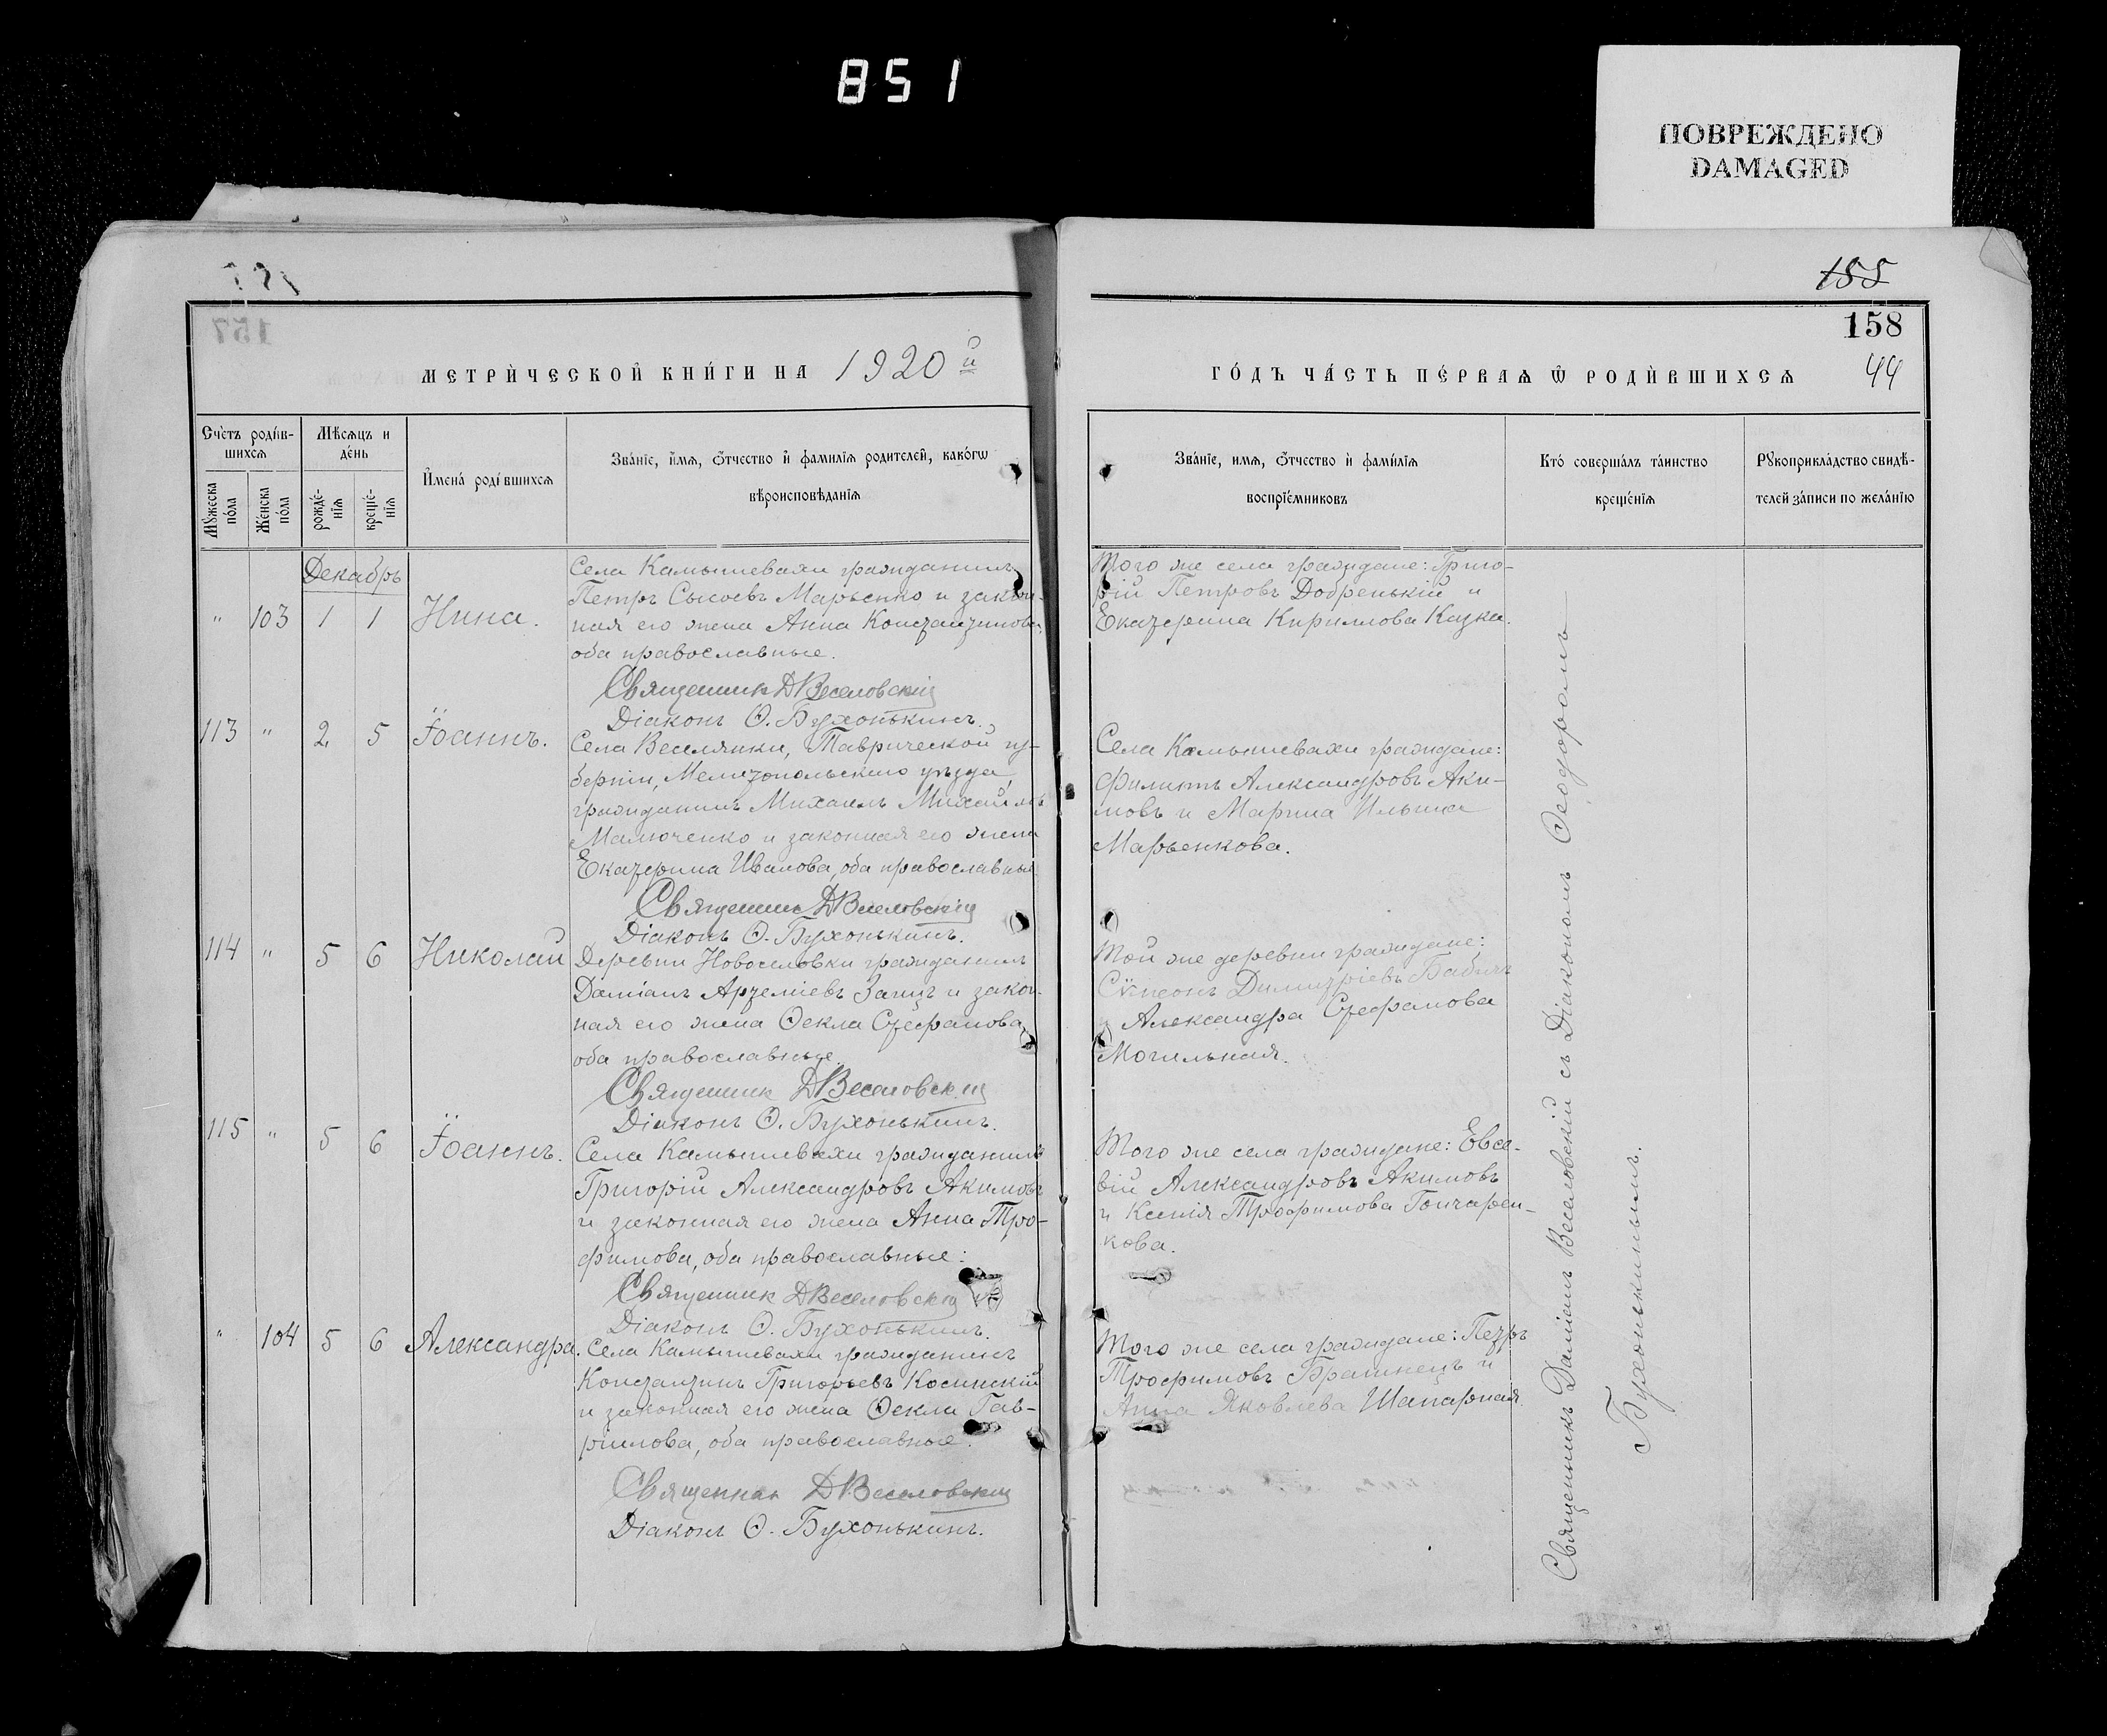 851
ПОВРЕЖДЕНО
DAMAGED
155
158
44
157
МЕТРИ́ЧЕСКОЙ КНИ́ГИ НА 1920й
ГО́ДЪ ЧА́СТЬ ПЕ́РВАѦ Ѡ РОДИ́ВШИХСѦ
Сче́тъ роди́в-
шихсѧ
Мꙋ́жеска по́ла
Же́нска по́ла
Мѣ́сѧцъ и
де́нь
рожде́-
нїѧ
креще́-
нїѧ
И҆мена̀ роди́вшихсѧ
Зва́нїе, и҆́мѧ, ѻ҆́тчество и҆ фами́лїѧ роди́телей, како́гѡ
вѣроисповѣ́данїѧ
Зва́нїе, имѧ, ѻ҆́тчество ѝ фами́лїѧ
воспрїе́мниковъ
Кто̀ соверша́лъ та́инство
креще́нїѧ
Рꙋкоприкла́дство свидѣ́-
телей за́писи по жела́нїю
Декабрь
" 103 1 1 Нина.
Села Камышевахи гражданинъ
Петръ Сысоевъ Марьенко и закон-
ная его жена Анна Константинова,
оба православные.
Священникъ ДВеселовскій
Діаконъ Ѳ. Бухонькинъ.
Того же села граждане: Григо-
рій Петровъ Добренькій и
Екатерина Кириллова Казка.
113 " 2 5 Іоаннъ.
Села Веселянки, Таврической гу-
берніи, Мелитопольскаго уѣзда,
гражданинъ Михаилъ Михайловъ
Малюченко и законная его жена
Екатерина Иванова, оба православные
Священникъ ДВеселовскій
Діаконъ Ѳ. Бухонькинъ.
Села Камышевахи граждане:
Филиппъ Александровъ Аки-
мовъ и Марина Ильина
Марьенкова.
114 " 5 6 Николай
Деревни Новоселовки гражданинъ
Даміанъ Артеміевъ Заяцъ и закон-
ная его жена Ѳекла Стефанова,
оба православные.
Священникъ ДВеселовскій
Діаконъ Ѳ. Бухонькинъ.
Той же деревни граждане:
Сѵмеонъ Димитріевъ Бабичъ
и Александра Стефанова
Могильная.
115 " 5 6 Іоаннъ.
Села Камышевахи гражданинъ
Григорій Александровъ Акимовъ
и законная его жена Анна Тро-
фимова, оба православные:
Священникъ ДВеселовскій
Діаконъ Ѳ. Бухонькинъ.
Того же села граждане: Евсе-
вій Александровъ Акимовъ
и Ксенія Трофимова Гончарен-
кова.
" 104 5 6 Александра.
Села Камышевахи гражданинъ
Константинъ Григорьевъ Косинскій
и законная его жена Ѳекла Гав-
ріилова, оба православные.
Священникъ ДВеселовскій
Діаконъ Ѳ. Бухонькинъ.
Того же села граждане: Петръ
Трофимовъ Братнецъ и
Анна Яковлева Шапарная.
Священникъ Даміанъ Веселовскій съ Діакономъ Ѳеодоромъ
Бухонькинымъ.